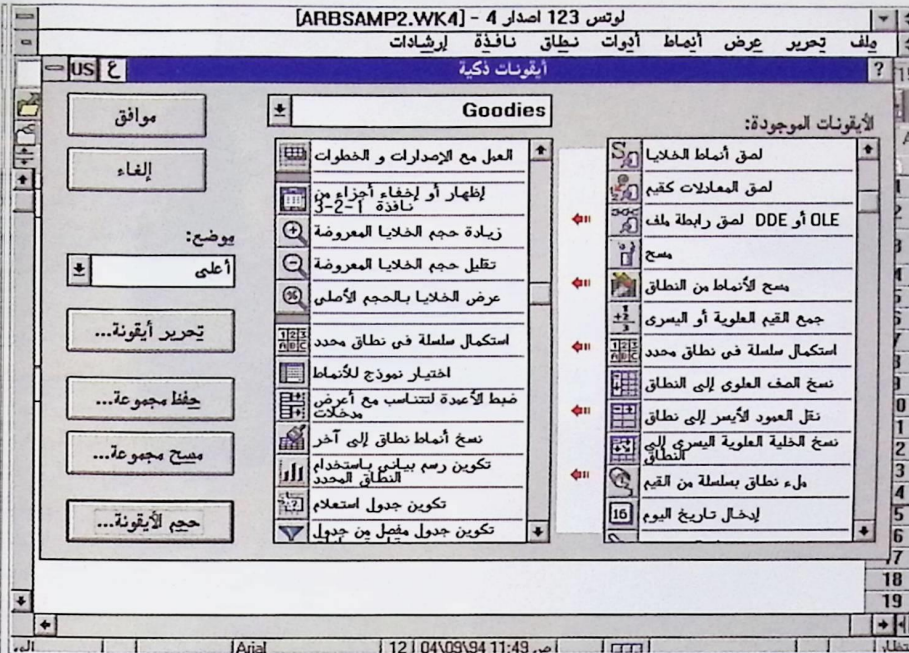 لوتس 123 اصدار 4 - [ARBSAMP2.WK4]
ملف تحرير عرض أنماط أدوات نطاق نافذة إرشادات
أيقونات ذكية
US ع
?
الأيقونات الموجودة:
لصق أنماط الخلايا
لصق المعادلات كقيم
OLE أو DDE لصق رابطة ملف
مسح
مسح الأنماط من النطاق
جمع القيم العلوية أو اليسرى
استكمال سلسلة فى نطاق محدد
نسخ الصف العلوى إلى النطاق
نقل العمود الأيسر إلى نطاق
نسخ الخلية العلوية اليسرى إلى
النطاق
ملء نطاق بسلسلة من القيم
إدخال تاريخ اليوم
Goodies
العمل مع الإصدارات و الخطوات
إظهار أو إخفاء أجزاء من
نافذة 1-2-3
زيادة حجم الخلايا المعروضة
تقليل حجم الخلايا المعروضة
عرض الخلايا بالحجم الأصلى
استكمال سلسلة فى نطاق محدد
اختيار نموذج للأنماط
ضبط الأعمدة لتتناسب مع أعرض
مدخلات
نسخ أنماط نطاق إلى آخر
تكوين رسم بيانى باستخدام
النطاق المحدد
تكوين جدول استعلام
تكوين جدول مفصل من جدول
موافق
إلغاء
موضع:
أعلى
تحرير أيقونة...
حفظ مجموعة...
مسح مجموعة...
حجم الأيقونة...
17
18
19
Arial
12
04\09\94 11:49 ص